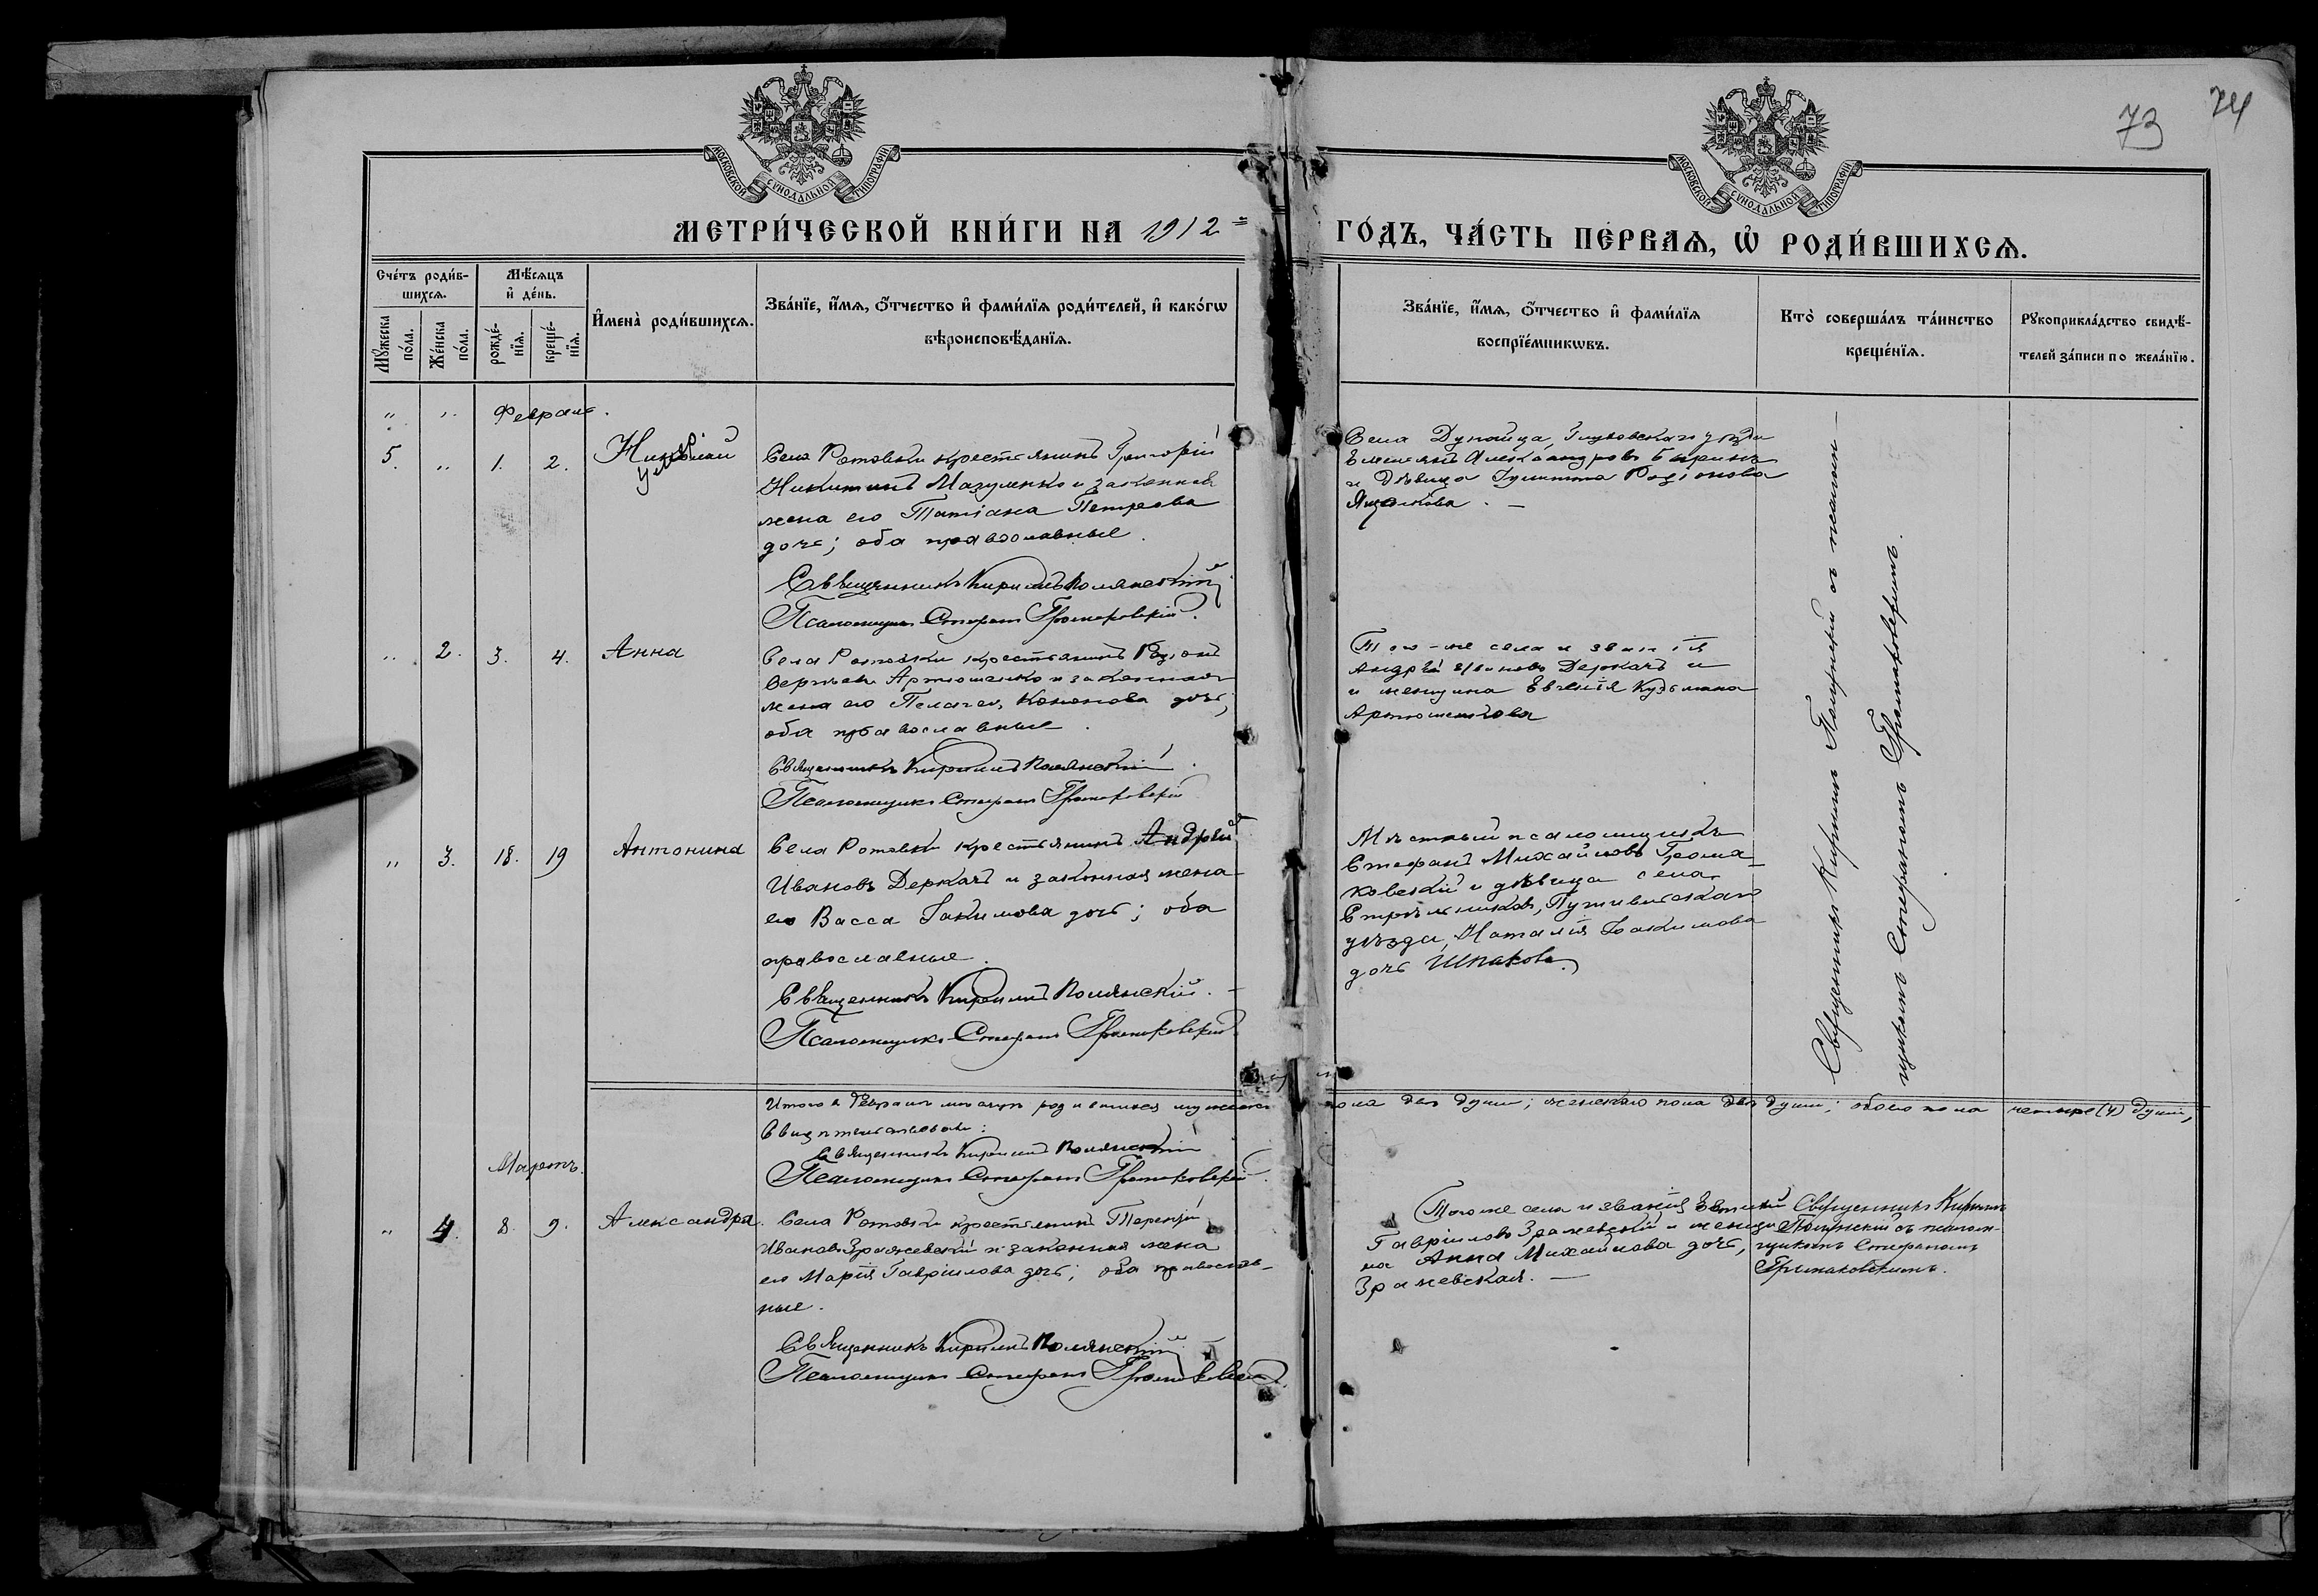 73 74
МОСКОВСКОЙ СѴНОДАЛЬНОЙ ТИПОГРАФІИ
МОСКОВСКОЙ СѴНОДАЛЬНОЙ ТИПОГРАФІИ
МЕТРИ́ЧЕСКОЙ КНИ́ГИ НА 1912 ГО́ДЪ, ЧА́СТЬ ПЕ́РВАѦ, Ѡ҆ РОДИ́ВШИХСѦ.
Сче́тъ роди́в-
шихсѧ.
Мꙋжеска
по́ла.
Же́нска
по́ла.
Мѣ́сѧцъ
и҆ де́нь.
рожде́-
нїѧ.
креще́-
нїѧ.
И҆мена̀ роди́вшихсѧ.
Зва́нїе, и҆́мѧ, ѻ҆́тчество и҆ фами́лїѧ роди́телей, и҆ како́гѡ
вѣроисповѣ́данїѧ.
Зва́нїе, и҆́мѧ, ѻ҆́тчество и҆ фами́лїѧ
воспрїе́мникѡвъ.
Кто̀ соверша́лъ та́инство
креще́нїѧ.
Рꙋкоприкла́дство свидѣ́-
телей за́писи по жела́нїю.
" " Февраль.
5. " 1. 2. Николай
умер.
Села Ротовки крестьянинъ Григорій
Никитинъ Мазуленко и законная
жена его Татіана Петрова
дочь; оба православные.
Священникъ Кириллъ Полянскій
Псаломщикъ Стефанъ Громаковскій.
Села Дунайца, Глуховскаго уѣзда
Емеліанъ Александровъ
и дѣвица Родіонова
" 2. 3. 4. Анна
Села Ротовки крестьянинъ Родіонъ
Сергѣевъ Артюшенко и законная
жена его Пелагея Кононова дочь;
оба православные.
Священникъ Кириллъ Полянскій.
Псаломщикъ Стефанъ Громаковскій
Того-же села и званія
Андрей Ивановъ Деркачъ и
и женщина Евгенія Кузьмина
Артюшенкова
" 3. 18. 19 Антонина
Села Ротовки крестьянинъ Андрей
Ивановъ Деркачъ и законная жена
его Васса Іакимова дочь; оба
православные.
Священникъ Кириллъ Полянскій.
Псаломщикъ Стефанъ Громаковскій
Мѣстный псаломщикъ
Стефанъ Михайловъ Грома-
ковскій и дѣвица села
Стрѣльниковъ, Путивльскаго
уѣзда, Наталія Іоакимова
дочь Шпакова.
Священникъ Кириллъ Полянскій съ псалом-
щикомъ Стефаномъ Громаковскимъ.
Итого в Февралѣ мѣсяцѣ родившихся мужескаго пола двѣ души; женскаго пола двѣ души; обоего пола четыре (4) души,
Священникъ Кириллъ Полянскій
Псаломщикъ Стефанъ Громаковскій.
Мартъ.
" 4. 8. 9. Александра.
Села Ротовки крестьянинъ Терентій
Ивановъ Зражевскій и законная жена
его Марія Гавріилова дочь; оба православ-
ные.
Священникъ Кириллъ Полянскій
Псаломщикъ Стефанъ Громаковскій.
Того же села и званія
Гавріиловъ Зражевскій и женщи-
на Анна Михайлова дочь,
Зражевская.
Священникъ Кириллъ
Полянскій съ псалом-
щикомъ Стефаномъ
Громаковскимъ.